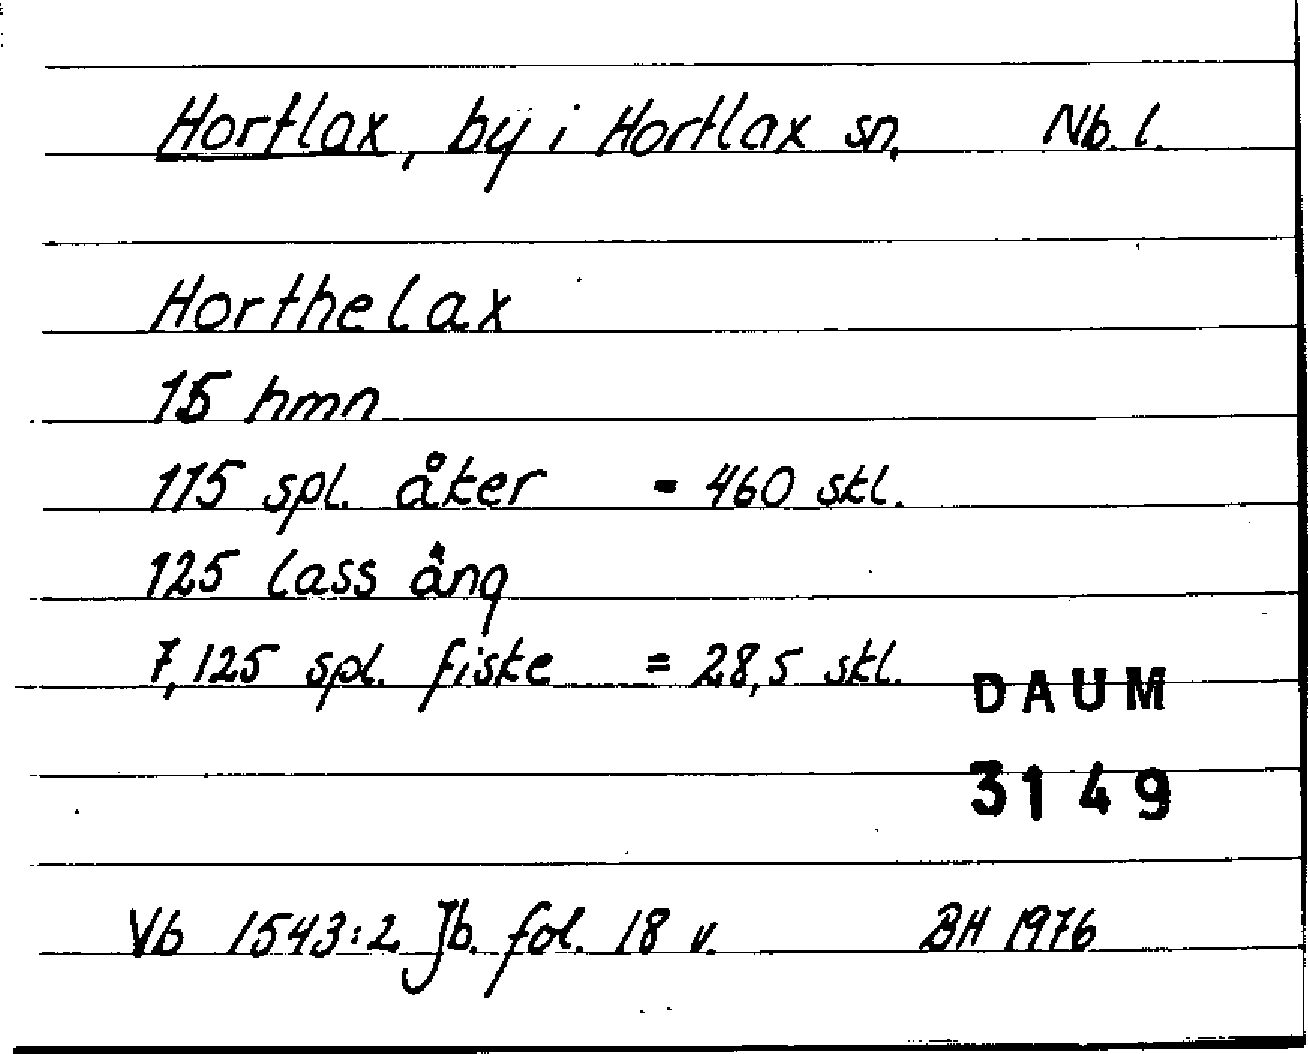 Hortlax, by i Hortlax sn. Nb. l.
Horthelax
15 hmn
115 spl. åker = 460 skl.
125 lass äng
7,125 spl. fiske = 28,5 skl.
DAUM
3149
Vb 1543:2 Jb. fol. 18 v. BH 1976